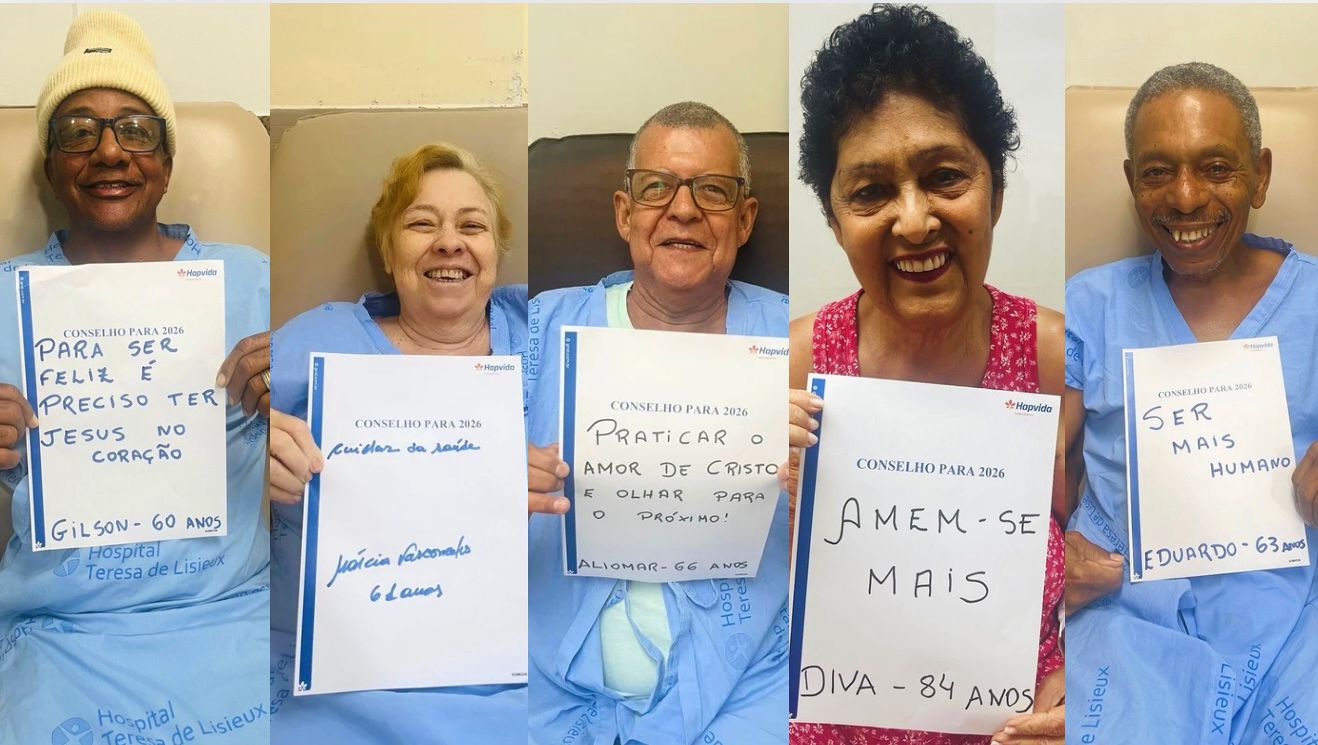 Hapvida
CONSELHO PARA 2026
PARA SER
FELIZ É
PRECISO TER
JESUS NO
CORAÇÃO
GILSON - 60 ANOS
Hospital
Teresa de Lisieux
Hospital
Teresa de Lisieux
Hapvida
CONSELHO PARA 2026
Cuidar da saúde
Márcia Vasconcelos
61 anos
Teresa de Lis
Hapvid
CONSELHO PARA 2026
PRATICAR O
AMOR DE CRISTO
E OLHAR PARA
O PRÓXIMO!
ALIOMAR - 66 ANOS
Hosp
Teres
Hapvida
CONSELHO PARA 2026
AMEM-SE
MAIS
DIVA - 84 ANOS
Hapvida
CONSELHO PARA 2026
SER
MAIS
HUMANO
EDUARDO - 63 ANOS
e Lisieux
Lisieux